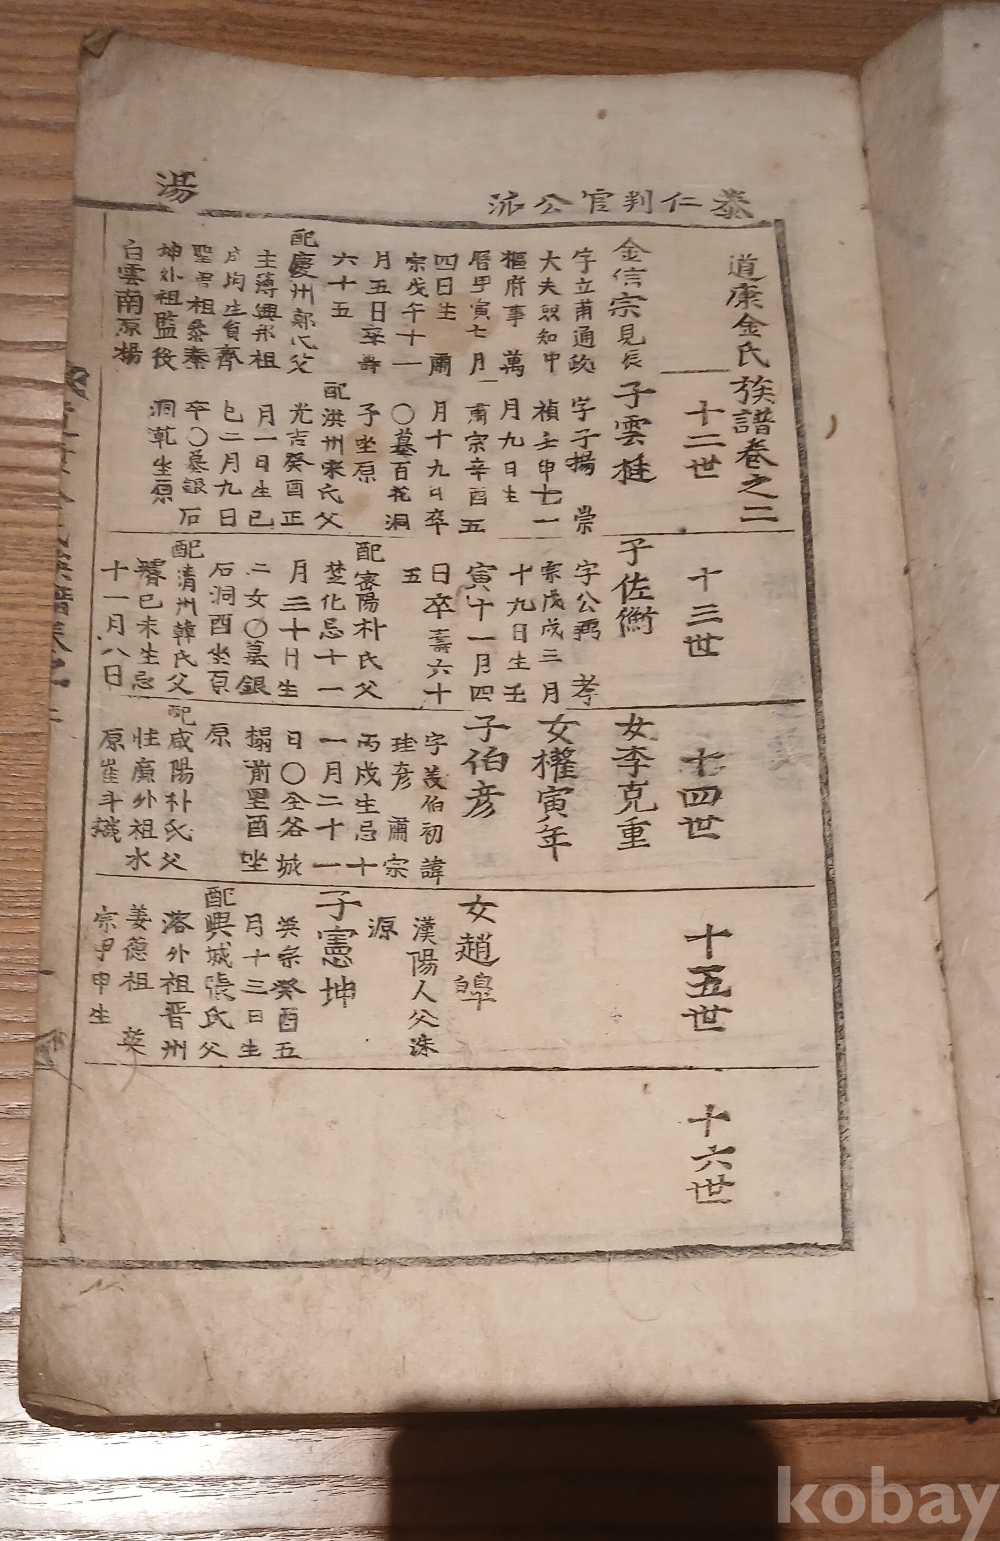 泰仁判官公派
湯
道康金氏族譜卷之二
十二世
金信宗見長
子雲梃
字立甫通政
大夫僉知中
樞府事 萬
曆甲寅七月
四日生 肅
宗戊午十一
月五日卒壽
六十五
配慶州鄭氏父
主簿興邦祖
成均生員齊
聖曾祖參奉
坤外祖監役
白雲南原楊
字子揚 崇
禎壬申七一
月九日生
肅宗辛酉五
月十九日卒
〇墓百花洞
子坐原
配洪州宋氏父
光吉癸酉正
月一日生己
巳二月九日
卒〇墓銀石
洞乾坐原
十三世
子佐衡
字公 孝
宗戊戌三月
十九日生壬
寅十一月四
日卒壽六十
五
配密陽朴氏父
楚化忌十一
月三十日生
二女〇墓銀
石洞酉坐原
配清州韓氏父
濬己未生忌
十一月八日
十四世
女李克重
女權寅年
子伯彦
字羙伯初諱
珪彦 肅宗
丙戌生忌十
一月二十一
日〇全谷城
榻前里酉坐
原
配咸陽朴氏父
性廉外祖水
原崔斗
十五世
女趙皞
漢陽人父洙
源
子憲坤
英宗癸酉五
月十三日生
配興城張氏父
落外祖晋州
姜德祖 英
宗甲申生
十六世
kobay